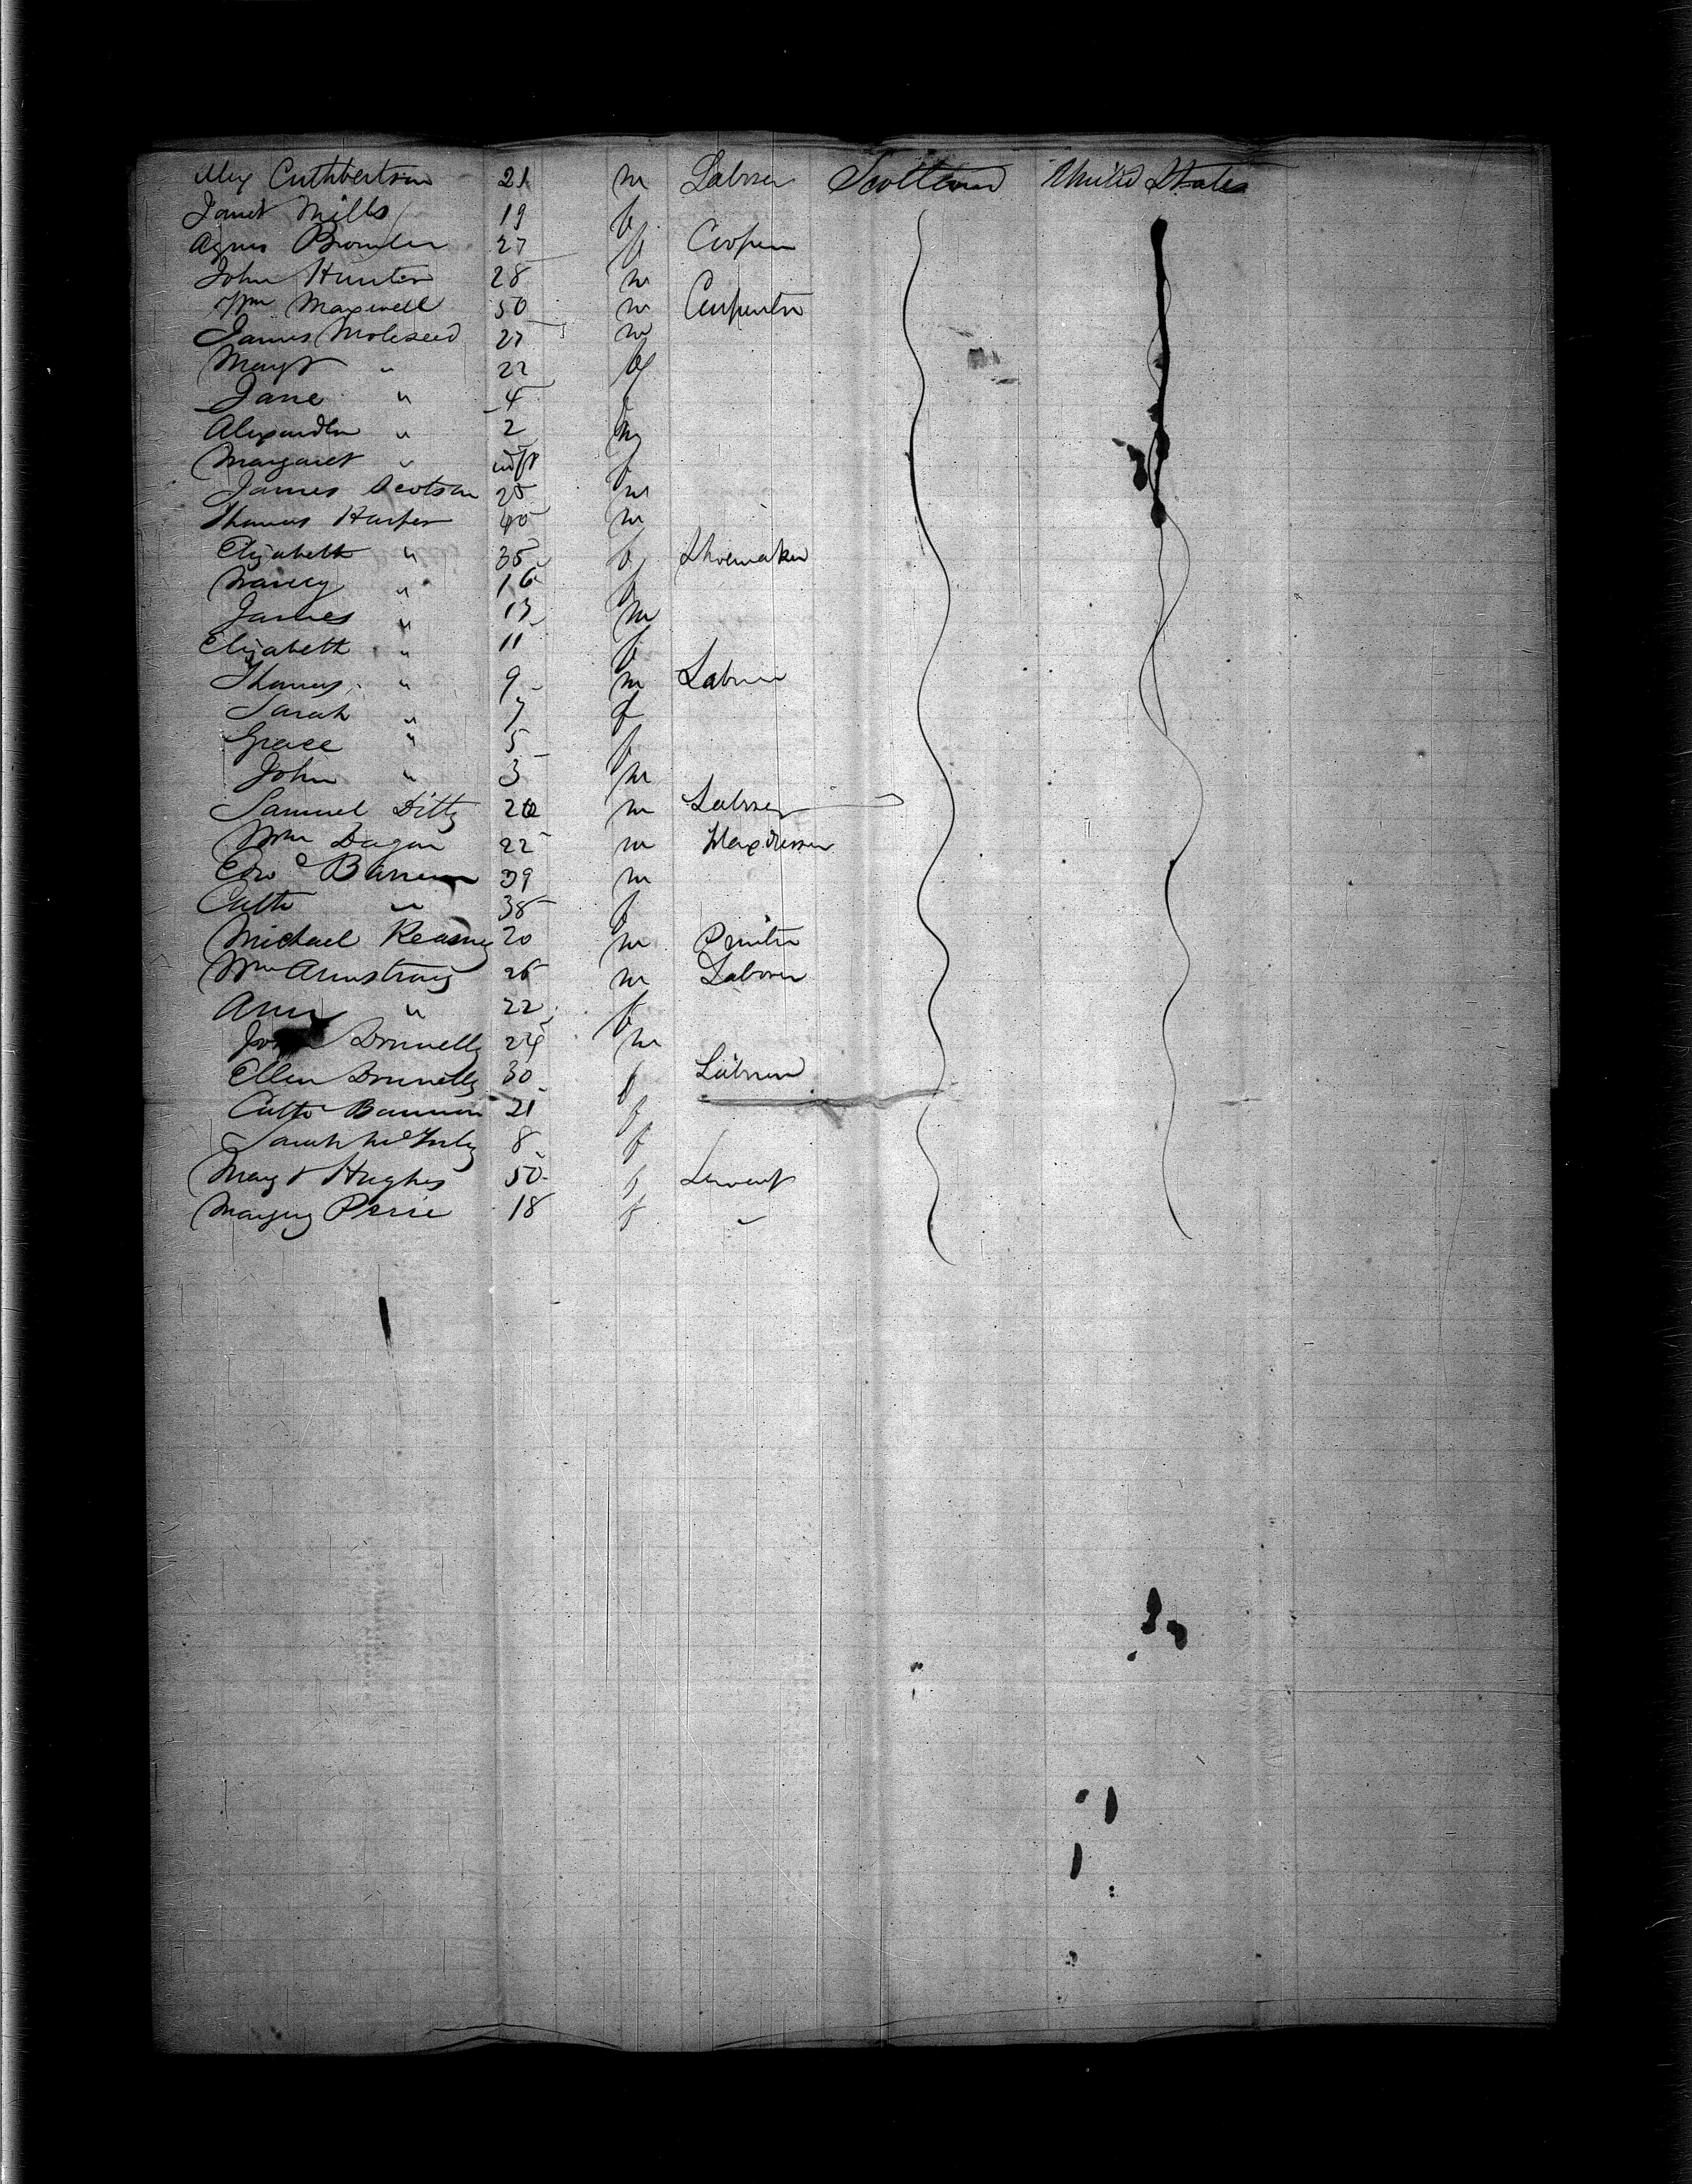 Alex Cuthbertson 21 m Labourer Scotland United States
Janet Mills 19 f
Agnes 27 f Cooper
John Hunter 28 m
Wm Maxwell 50 m Carpenter
James Moleseed 27 m
Margt " 22 f
Jane " 4 f
Alexander " 2 m
Margaret " inft f
James Scotson 25 m
Thomas Harper 40 m
Elizabeth " 35 f Shoemaker
Nancy " 16 f
James " 13 m
Elizabeth " 11 f
Thomas " 9 m Labourer
Sarah " 7 f
Grace " 5 f
John " 3 m
Samuel Ditty 20 m Labourer
Wm Dagan 22 m Flaxdresser
Edwd 39 m
Cathe " 38 f
Michael Kearney 20 m Printer
Wm Armstrong 26 m Labourer
Ann " 22 f
Donnelly 24 m
Ellen Donnelly 30 f Labourer
Cathe Bannon 21 f
Sarah 8 f
Margt Hughes 50 f Servant
Margery 18 f "